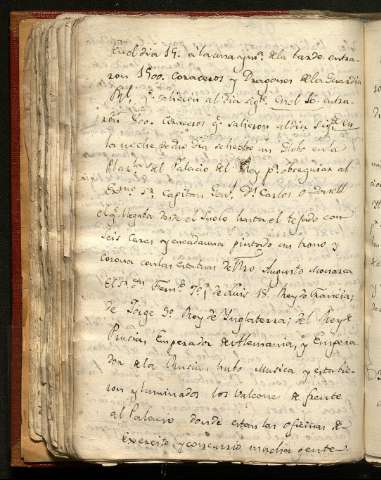 En el dia 15. a la una y m.ª de la tarde entra-
ron 1500. Coraceros y Dragones de la Guardia
Rl, q.e salieron al dia sig.te En el 16. entra-
ron 500. Coraceros q.e salieron al dia sig.te En
la noche de este dia se hecho un Globo en la
Plaz.a del Palacio del Rey p.a obsequiar al
Exmo Sr. Capitan Gen.l Dn. Carlos o Donell
el q.e llegaba desde el suelo hasta el tejado con
seis caras y en cada una pintado un trono y
Corona con las estatuas de Nro Augusto Monarca
el Sr. Dn. Fern.do 7.º; de Luis 18. Rey de Francia;
de Jorge 3.º Rey de Ynglaterra; del Rey de
Prusia, Emperador de Alemania, y Empera-
dor de la Rusia: hubo Musica y estubie-
ron yluminados los balcones de frente
al Palacio donde estan las oficinas de
exercito y concurrio mucha gente